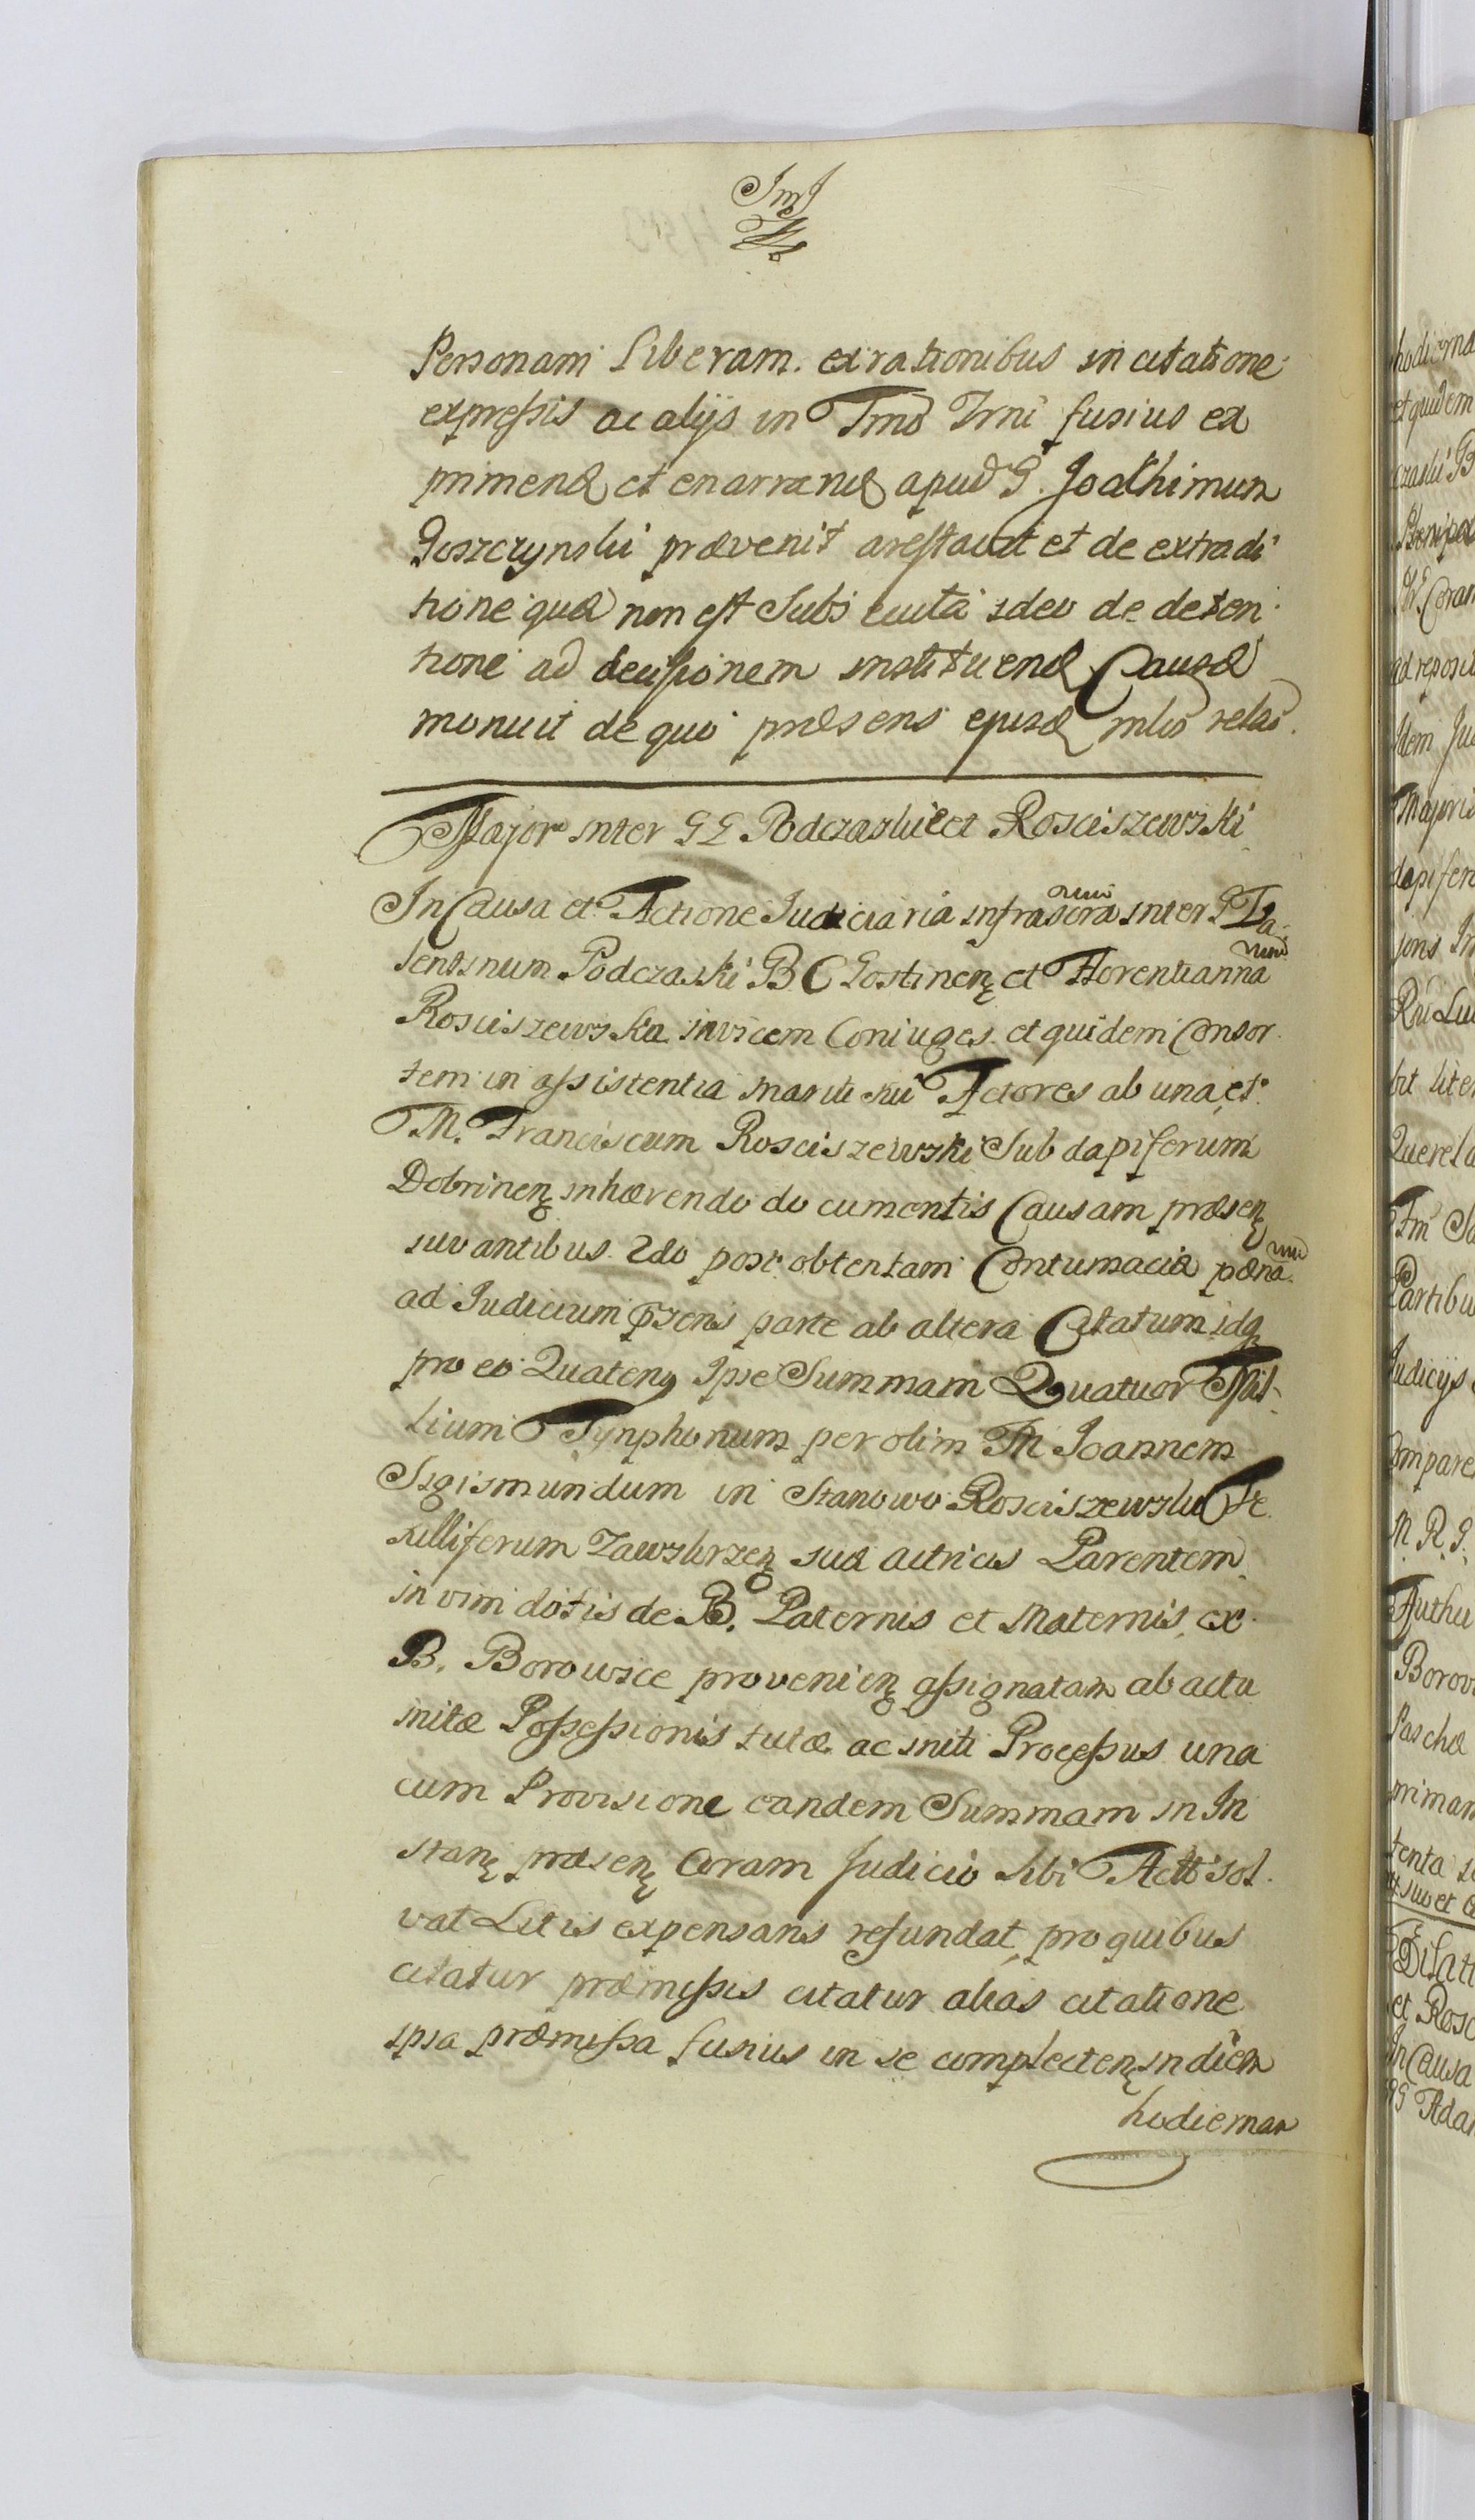 Personam Liberam. ex rationibus in citatione
expressis ac alijs in Tmo Trni fusius ex
primend et enarrand apud G. Joachimum
Goszczynski prævenit arestavit et de extradi
tione quæ non est Subsecuta ideo de deten
tione ad decisionem instituend Causæ
monuit de quo præsens ejusd mlis relao.
Major inter GG Podczaskie et Rosciszewski
In Causa et Actione Judiciaria infrascra inter G Va
lentinum Podczaski B C Gostinen et Florentianna
Rosciszewska invicem Coniuges et quidem Consor
tem in assistentia mariti sui Actores ab una et
M. Franciscum Rosciszewski Subdapiferum
Dobrinen inhærendo documentis Causam præsen
iuvantibus 2do post obtentam Contumaciæ pæna
ad Judicium pzens parte ab altera Citatum idq
pro eo Quatenus Ipse Summam Quatuor Mil
lium Tynphonum per olim M Joannem
Sigismundum in Stanowo Rosciszewski Ve
xilliferum Zawskrzen suæ actricis Parentem
in vim dotis de B. Paternis et Maternis, ex
B. Borowice provenien assignatam ab actu
initæ Possessionis tutæ ac initi Processus una
cum Provisione eandem Summam in In
stan præsen Coram Judicio sibi Actti sol
vat Litis expensans refundat, pro quibus
citatur præmissis citatur alias citatione
ipsa præmissa fusius in se complecten in diem
hodiernam